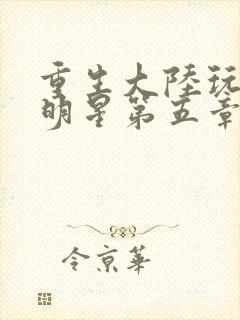 重生大陸玩
明星第五章
令京華